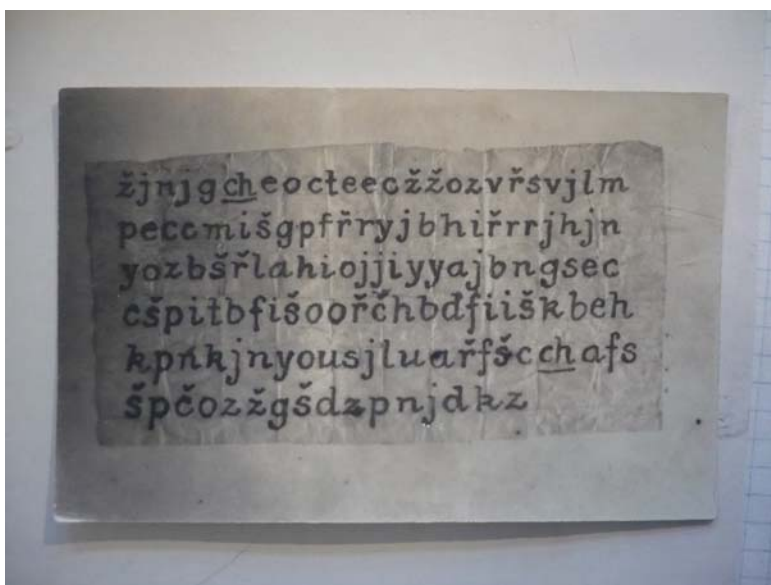 žjnjgcheocteeožžozvřsvjlm
peccmišgpfřryjbhiřrrjhjn
yozbšřlahiojjiyyajbngsec
cšpitbfišoořčhbdfiiškbeh
kpnkjnyousjluařfšcchafs
špčozžgšdzpnjdkz